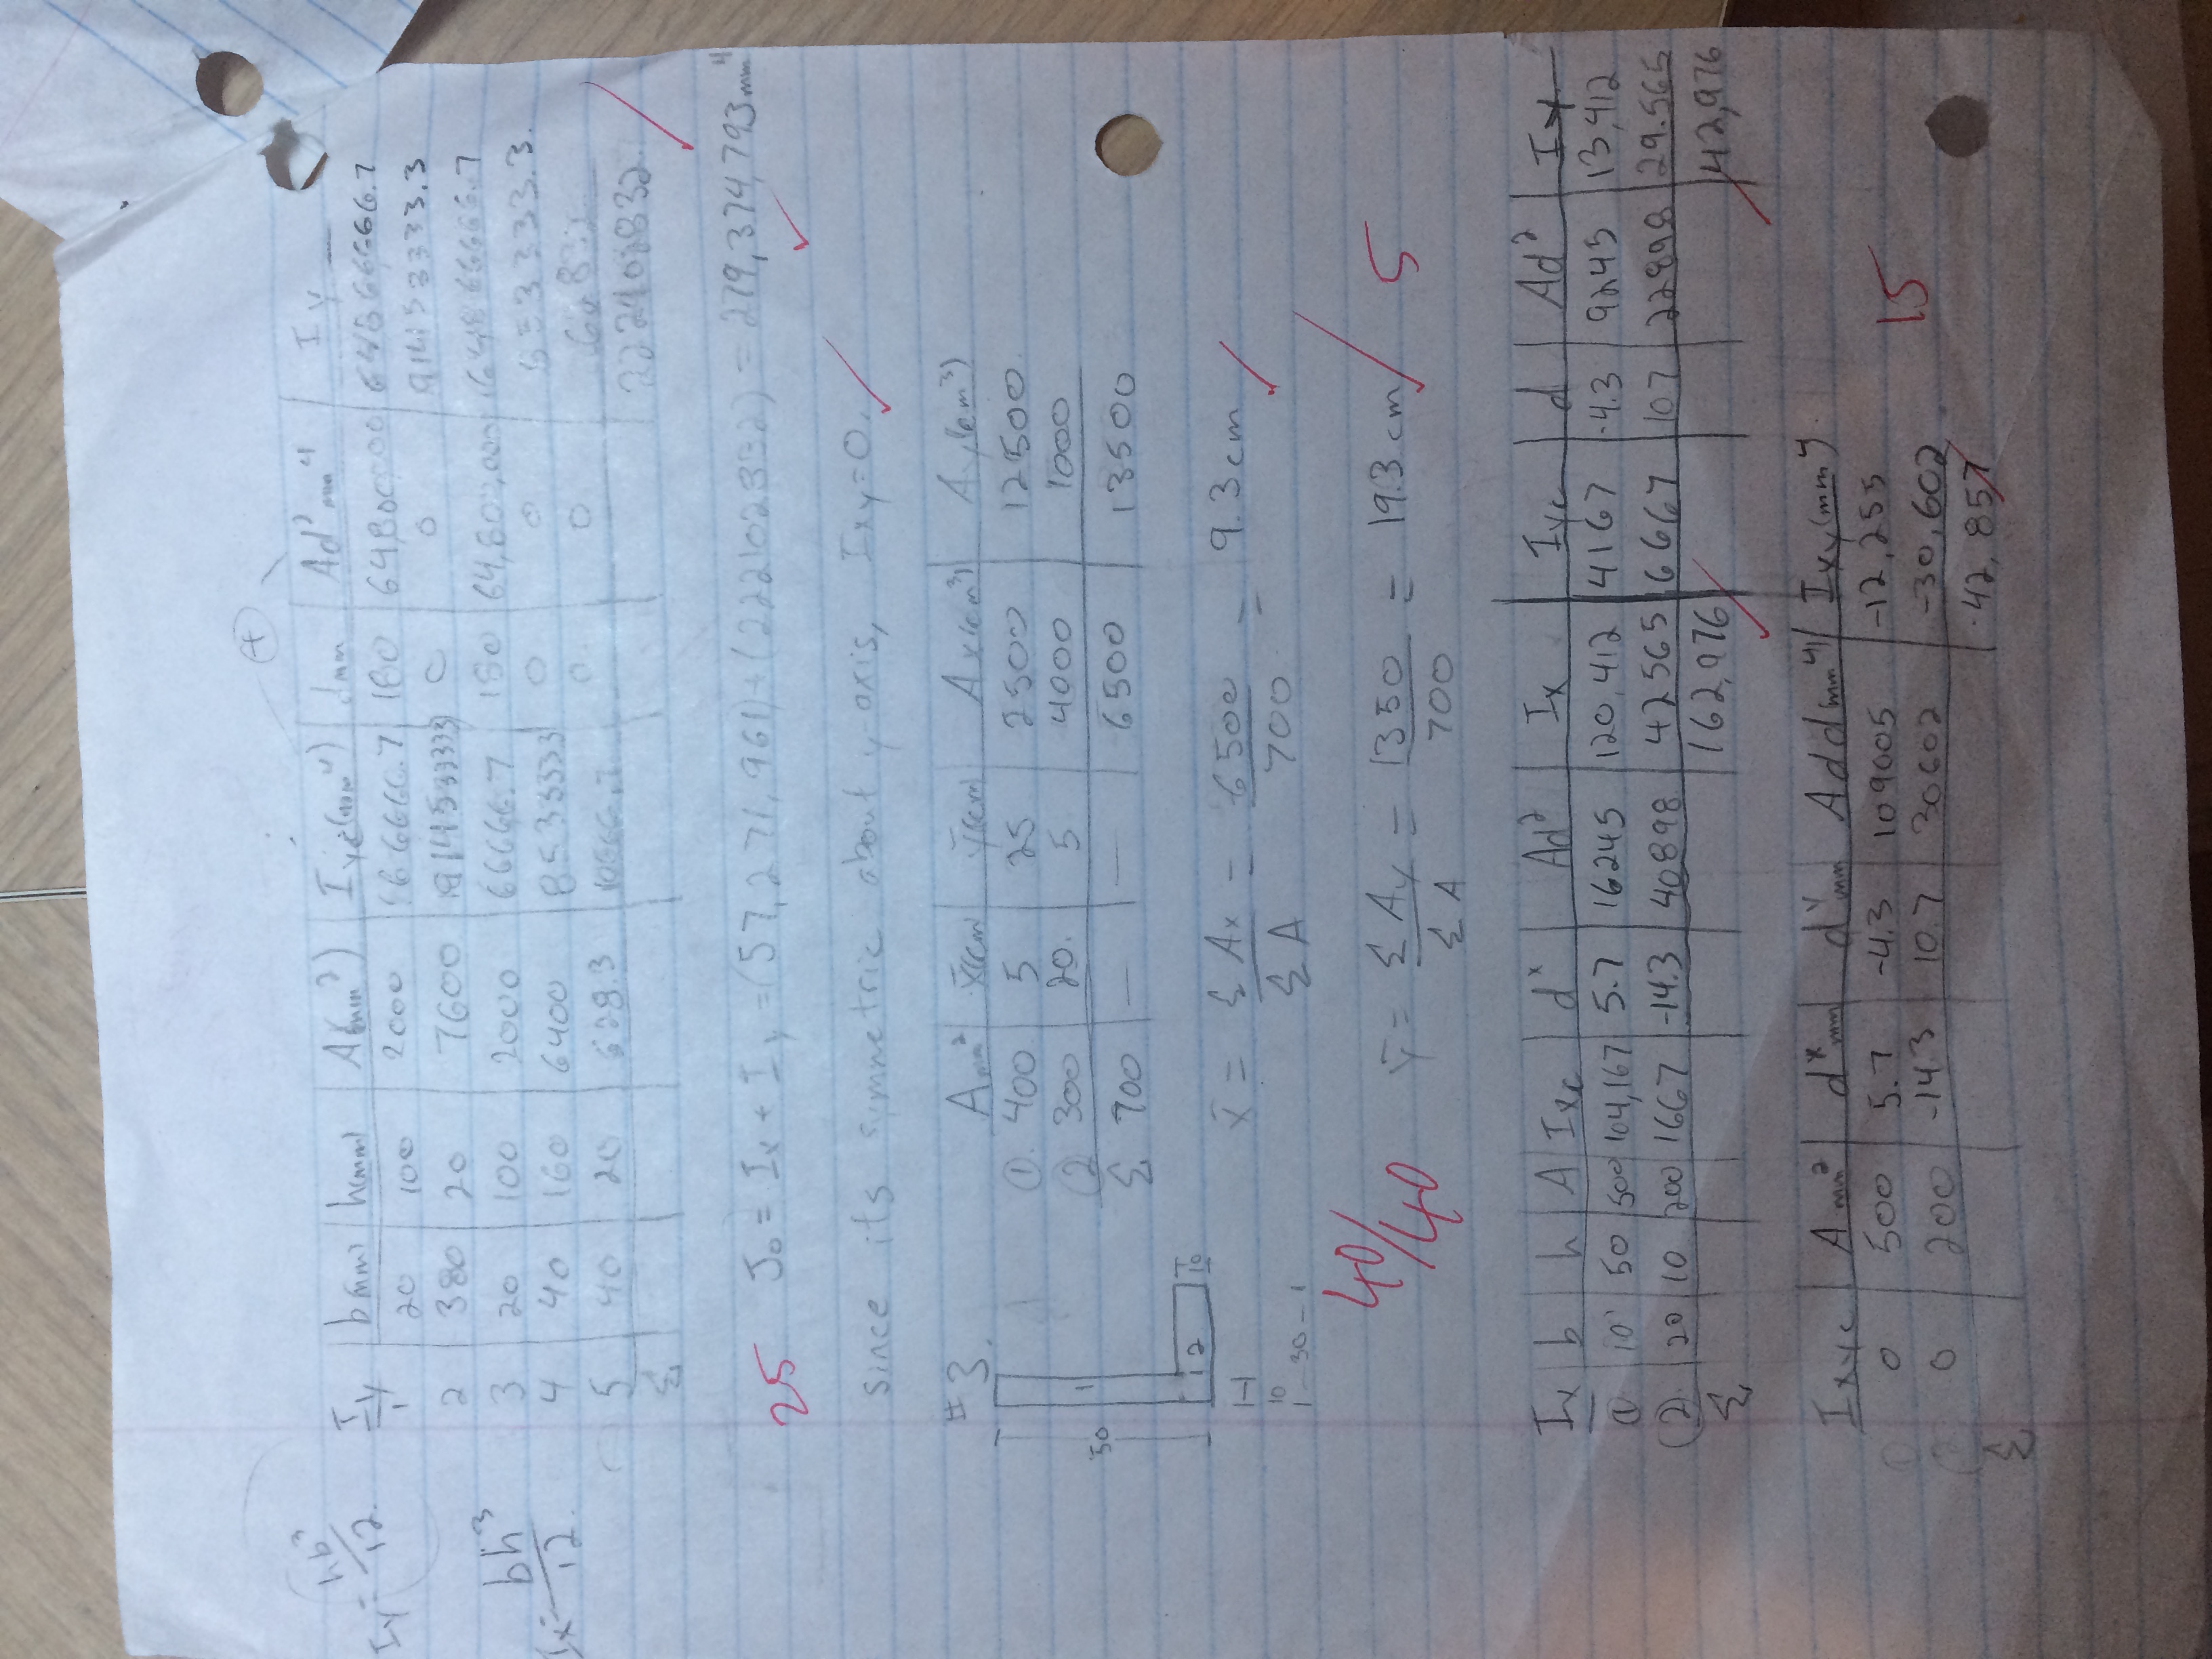 Iy = hb³/12
Ix = bh³/12
Iy | b mm | h(mm) | A(mm²) | Iyc(mm⁴) | d mm | Ad² mm⁴ | Iy
20 | 100 | 2000 | 66666.7 | 180 | 64,800,000 | 64866666.7
2 | 380 | 20 | 7600 | 91453333.3 | 0 | 0 | 91453333.3
3 | 20 | 100 | 2000 | 66666.7 | 180 | 64,800,000 | 64866666.7
4 | 40 | 160 | 6400 | 853333.3 | 0 | 0
5 | 40 | 20 | 628.3 | 0 | 0
Σ | 222102832
25
J₀ = Ix + Iy = (57,271,961) + (222102832) = 279,374,793 mm⁴
since its symmetric about y-axis, Ixy = 0.
#3.
50
1
2
10
10
30
A mm² | x̄(cm) | ȳ(cm) | Ax(cm³) | Ay(cm³)
① 400 | 5 | 25 | 2500 | 12500
② 300 | 20. | 5 | 4000 | 1000
Σ 700 | — | — | 6500 | 13500
x̄ = ΣAx/ΣA = 6500/700 = 9.3cm
40/40
ȳ = ΣAy/ΣA = 1350/700 = 19.3cm
5
Ix | b | h | A | Ixc | dx | Ad² | Ix | Iyc | d | Ad² | Iy
① | 10 | 50 | 500 | 104,167 | 5.7 | 16245 | 120,412 | 4167 | -4.3 | 9245 | 13,412
② | 20 | 10 | 200 | 1667 | -14.3 | 40898 | 42565 | 6667 | 10.7 | 22898 | 29.565
Σ | 162,976 | 42,976
Ixyc | A mm² | dx mm | dy mm | Add(mm⁴) | Ixy(mm⁴).
0 | 500 | 5.7 | -4.3 | -12,255
0 | 200 | -14.3 | 10.7 | 30602 | -30,602
Σ | -42,857
15